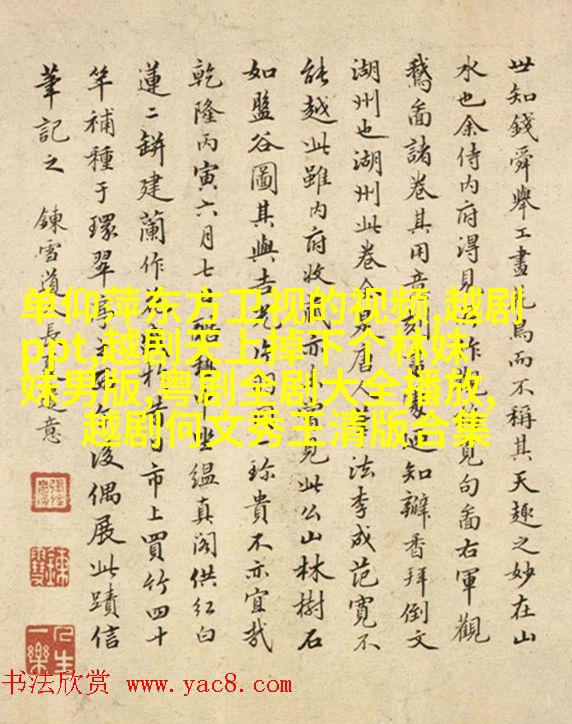 世知錢舜舉工畫花鳥而不稱其天趣之妙在山
水也余侍內府得見 作 見句畣右軍觀
鵞畣諸卷其用意刻畫 知辦香拜倒文
湖州也湖州此卷全 唐人 法李成范寬不
能越此雖內府收藏亦 見此公山林樹石
如盤谷圖其與吉光 珍貴不亦宜哉
乾隆丙寅六月七 坐縕真阁供紅白
蓮二缾建蘭作 市上買竹四十
竿補種于環翠亭 後偶展此蹟信
筆記之 鍊雪道人長 意
人生一樂
单仰萍东方卫视的视频,越剧
ppt,越剧天上掉下个林妹
妹男版,粤剧全剧大全播放,
越剧何文秀王清版合集
书法欣赏 www.yac8.com